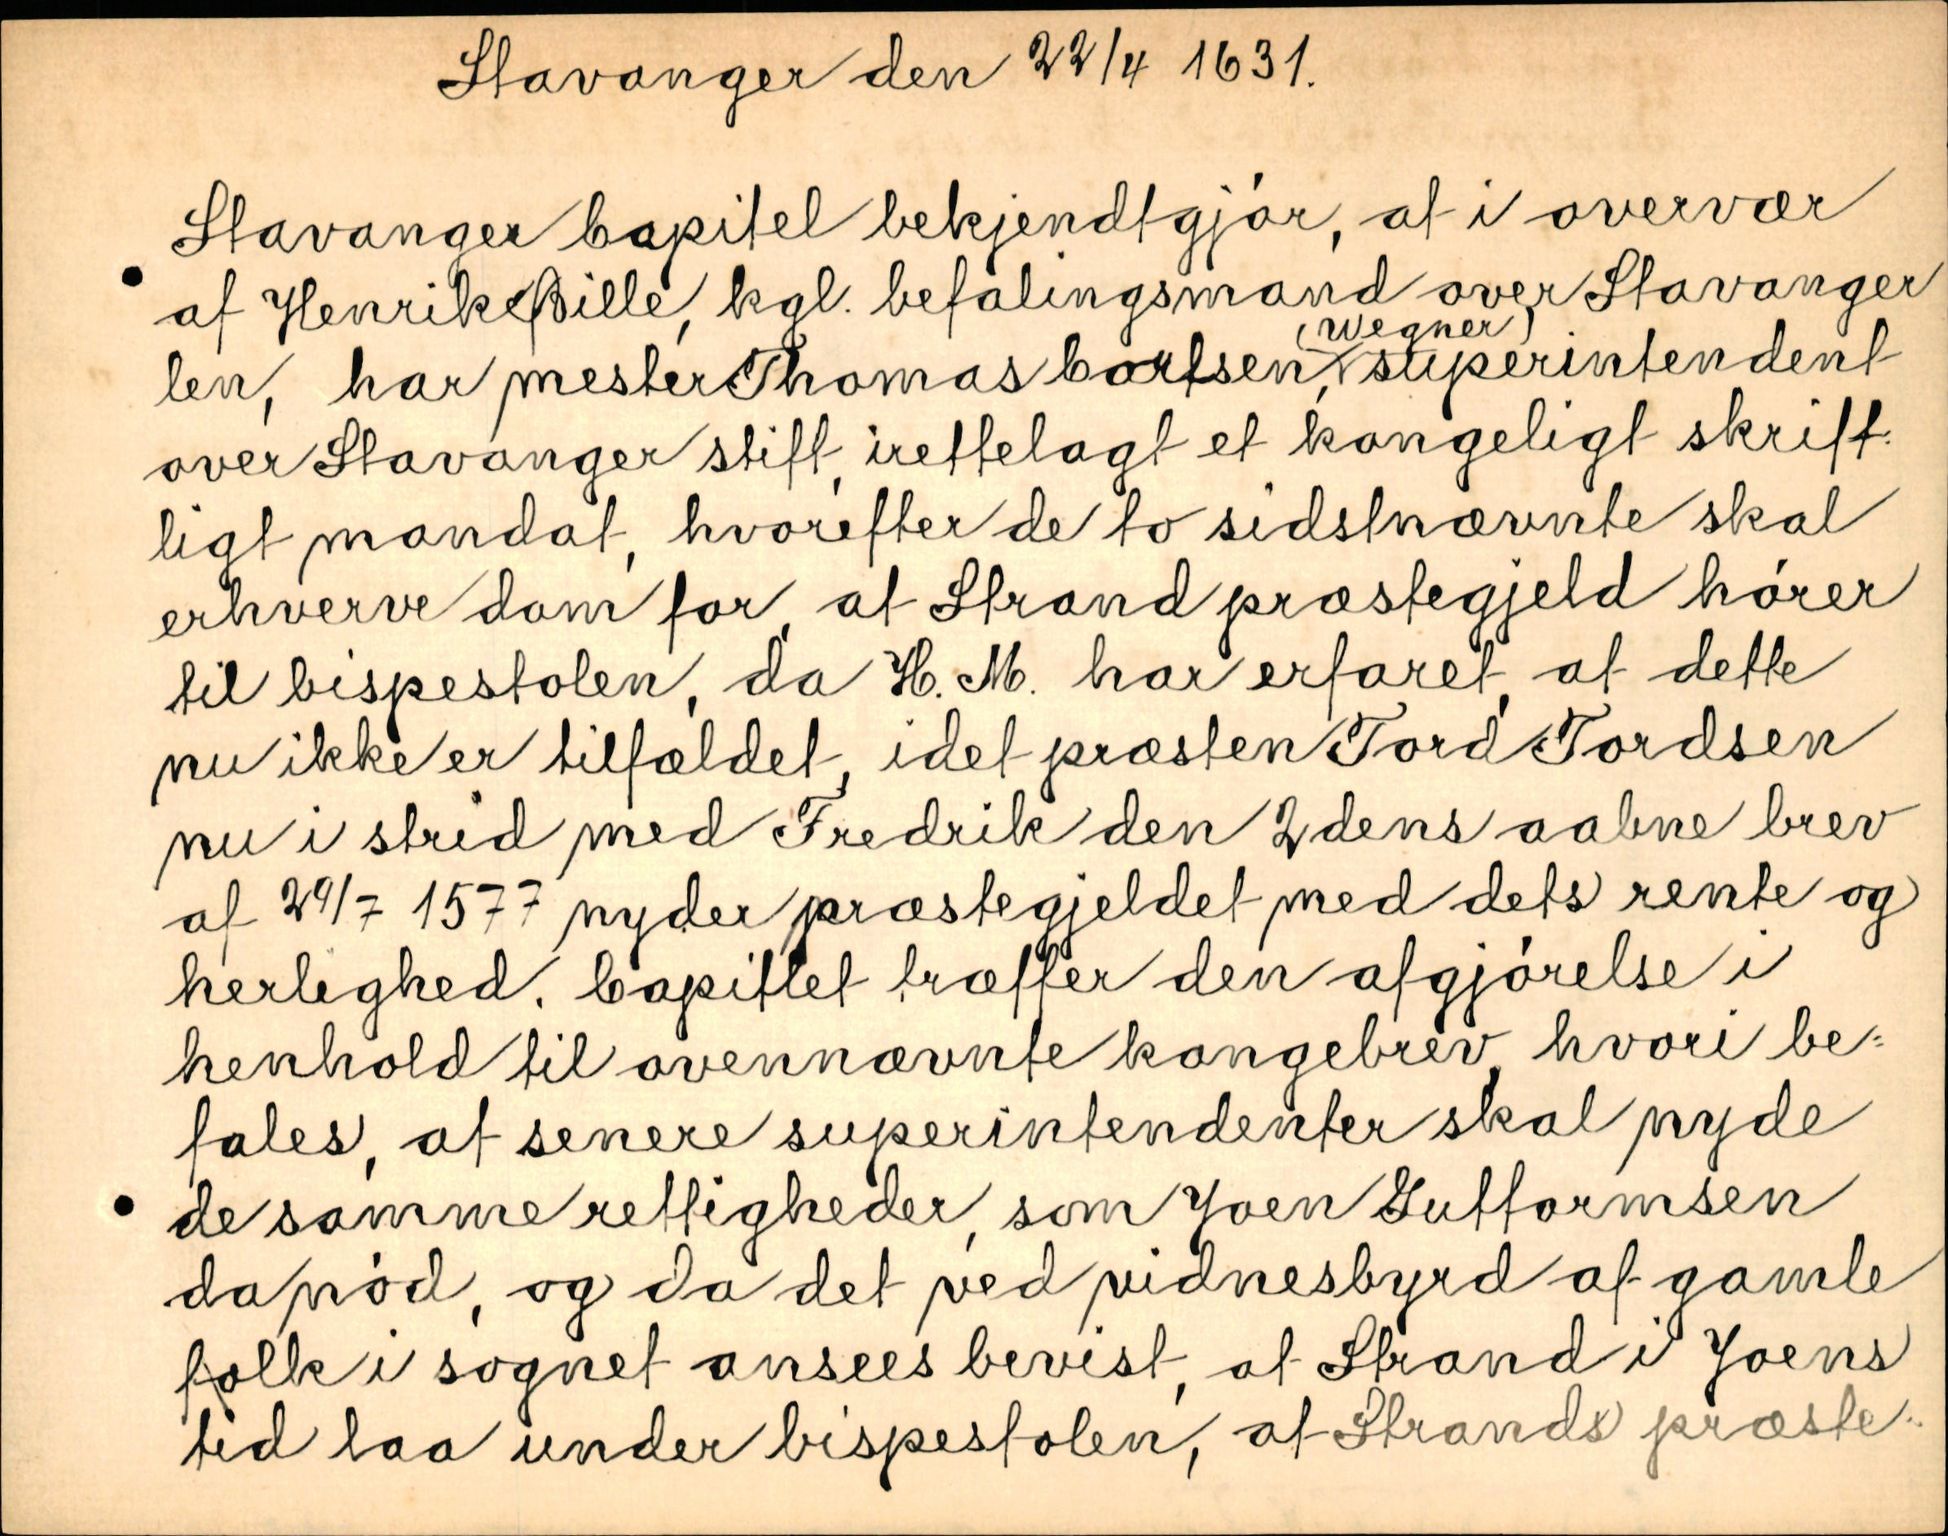 Stavanger den 22/4 1631.
Stavanger Capitel bekjendtgjór, at i overvær
af Henrik Bille, kgl. befalingsmand over Stavanger
len, har mester Thomas Cortsen, (Wegner) superintendent
over Stavanger stift, irettelagt et kongeligt skrift-
ligt mandat, hvorefter de to sidstnævnte skal
erhverve dom for, at Strand præstegjeld hórer
til bispestolen, da H. M. har erfaret, at dette
nu ikke er tilfældet, idet præsten Tord Tordsen
nu i strid med Fredrik den 2dens aabne brev
af 29/7 1577 nyder præstegjeldet med dets rente og
herlighed. Capitlet træffer den afgjórelse i
henhold til ovennævnte kongebrev, hvori be-
fales, at senere superintendenter skal nyde
de samme rettigheder, som Joen Guttormsen
da nód, og da det ved vidnesbyrd af gamle
folk i sognet ansees bevist, at Strand i Joens
tid laa under bispestolen, at Strands præste-